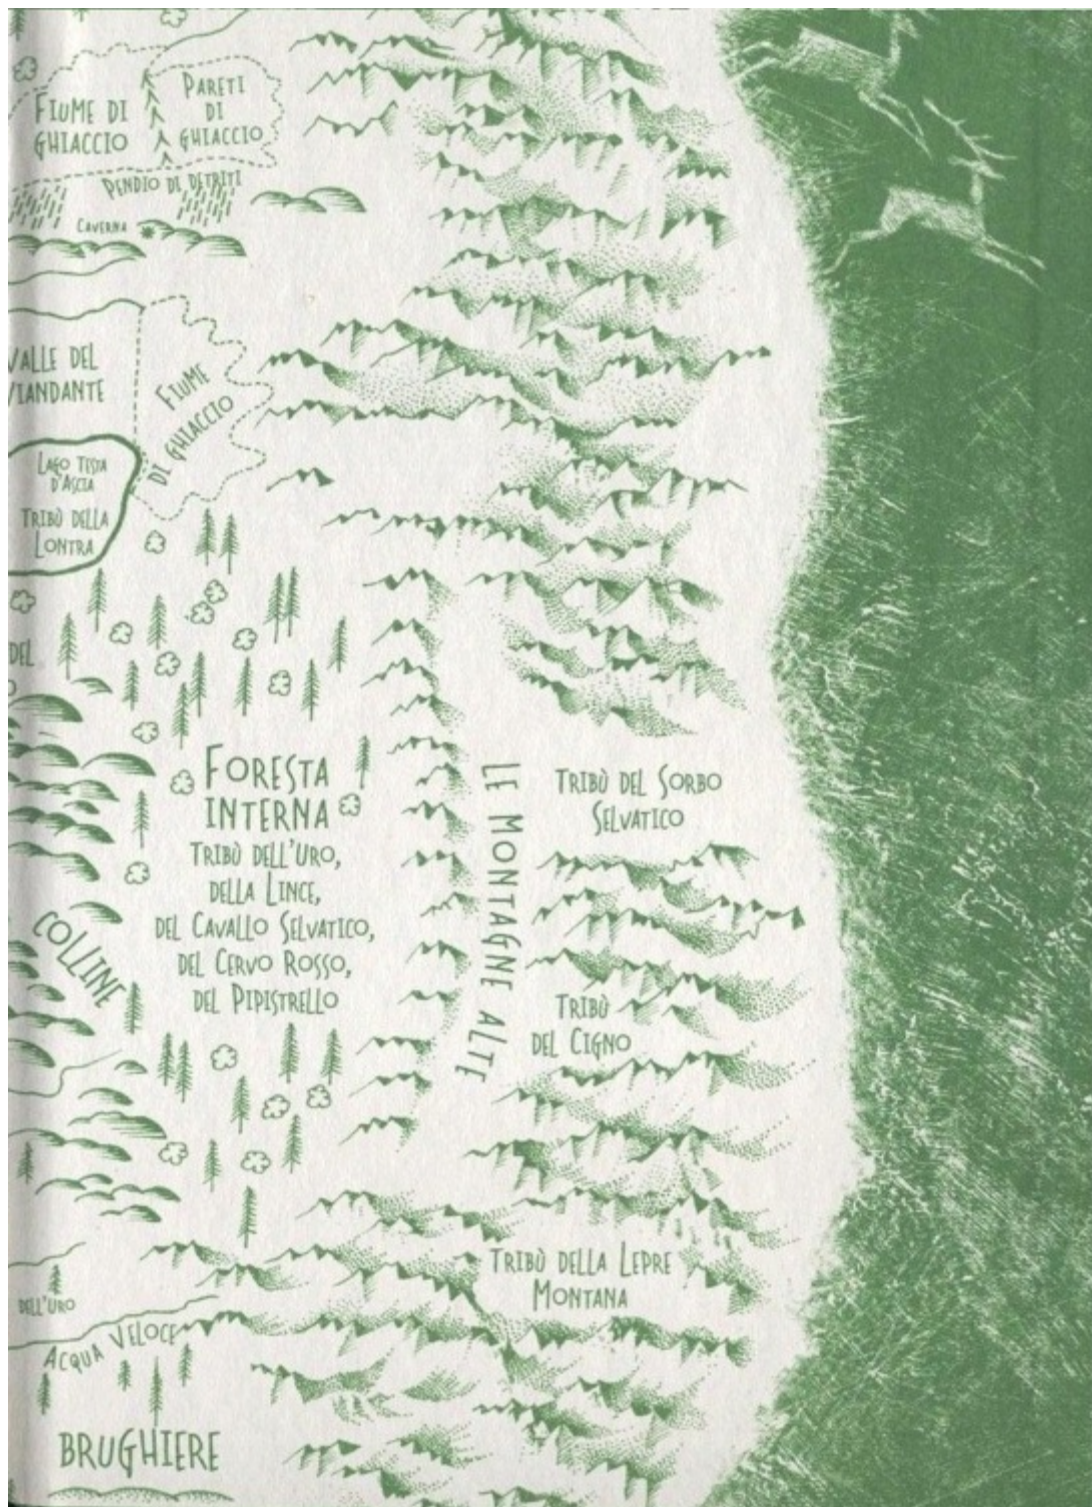 FIUME DI
GHIACCIO
PARETI
DI
GHIACCIO
PENDIO DI DETRITI
CAVERNA
VALLE DEL
VIANDANTE
FIUME
DI GHIACCIO
LAGO TESTA
D'ASCIA
TRIBÙ DELLA
LONTRA
DEL
FORESTA
INTERNA
TRIBÙ DELL'URO,
DELLA LINCE,
DEL CAVALLO SELVATICO,
DEL CERVO ROSSO,
DEL PIPISTRELLO
COLLINE
LE MONTAGNE ALTE
TRIBÙ DEL SORBO
SELVATICO
TRIBÙ
DEL CIGNO
TRIBÙ DELLA LEPRE
MONTANA
DELL'URO
ACQUA VELOCE
BRUGHIERE